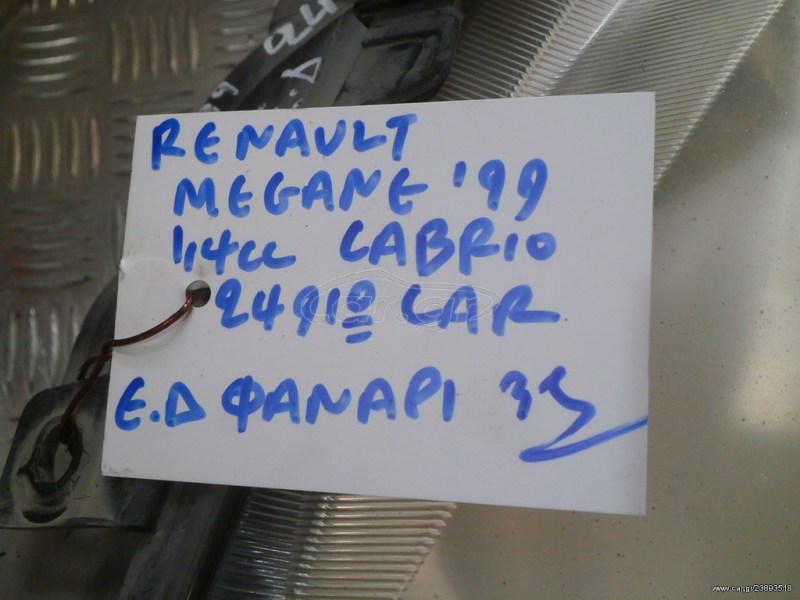 24
.Δ
RENAULT
MEGANE '99
1,4cc CABRIO
2491º CAR
Ε.Δ ΦΑΝΑΡΙ 35
www.car.gr/23893518